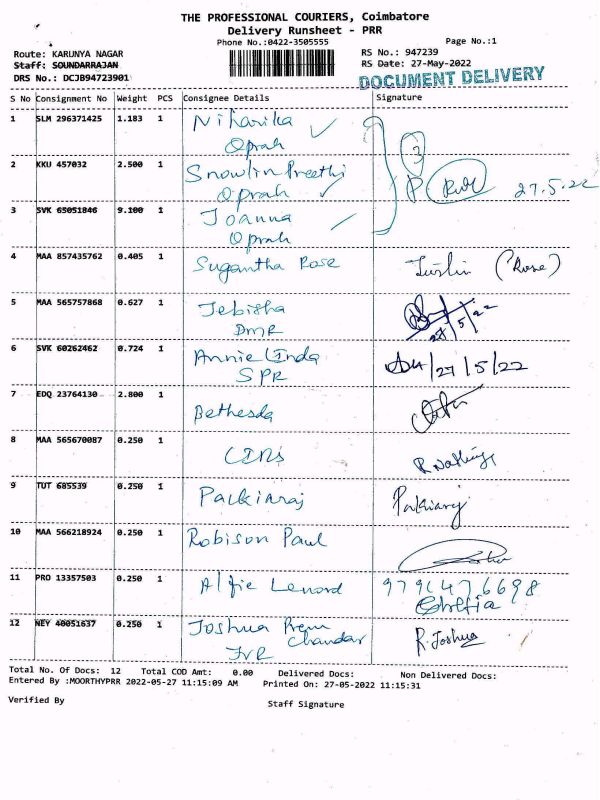 THE PROFESSIONAL COURIERS, Coimbatore
Delivery Runsheet - PRR
Phone No.:0422-3505555
Page No.:1
Route: KARUNYA NAGAR
RS No.: 947239
Staff: SOUNDARRAJAN
RS Date: 27-May-2022
DRS No.: DCJB94723901
DOCUMENT DELIVERY
S No Consignment No Weight PCS Consignee Details Signature
1 SLM 296371425 1.183 1 Niharika
Oprah
3
2 KKU 457032 2.500 1 Snowlin Preethi
Oprah
27.5.22
3 SVK 65051846 9.100 1 Joanna
Oprah
4 MAA 857435762 0.405 1 Sugantha Rose (Rose)
5 MAA 565757868 0.627 1 Jebisha
DMR
28/5/22
6 SVK 60262462 0.724 1 Annie Linda
SPR
27/5/22
7 EDQ 23764130 2.800 1 Bethesda
8 MAA 565670087 0.250 1
9 TUT 685539 0.250 1 Packiaraj Pakiaraj
10 MAA 566218924 0.250 1 Robison Paul
11 PRO 13357503 0.250 1 Alfie Lenord 9791476698
12 NEY 40051637 0.250 1 Joshua Prem
Chandar
JVR
R. Joshua
Total No. Of Docs: 12 Total COD Amt: 0.00 Delivered Docs: Non Delivered Docs:
Entered By :MOORTHYPRR 2022-05-27 11:15:09 AM Printed On: 27-05-2022 11:15:31
Verified By
Staff Signature